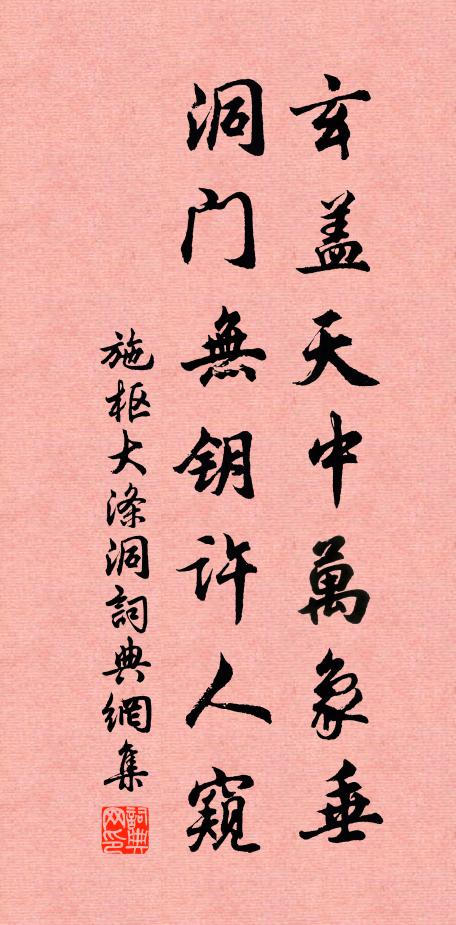 玄盖天中萬象垂
洞门無钥许人窺
施枢大涤洞詞典網集
詞典网印